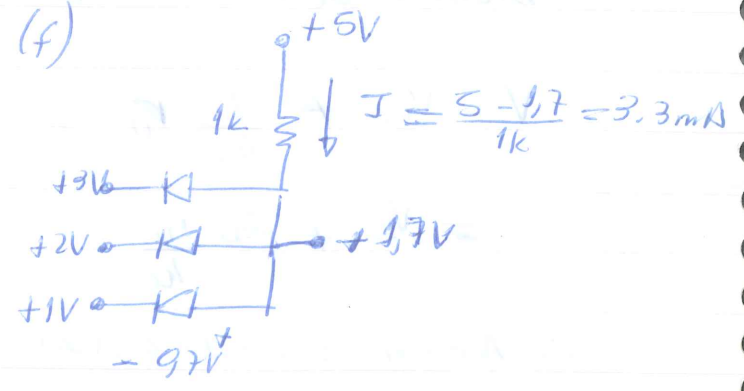 (f)
+5V
1k
I = 5 - 1,7 / 1k = 3.3mA
+3V
+2V
+1,7V
+1V
- 0,7V +